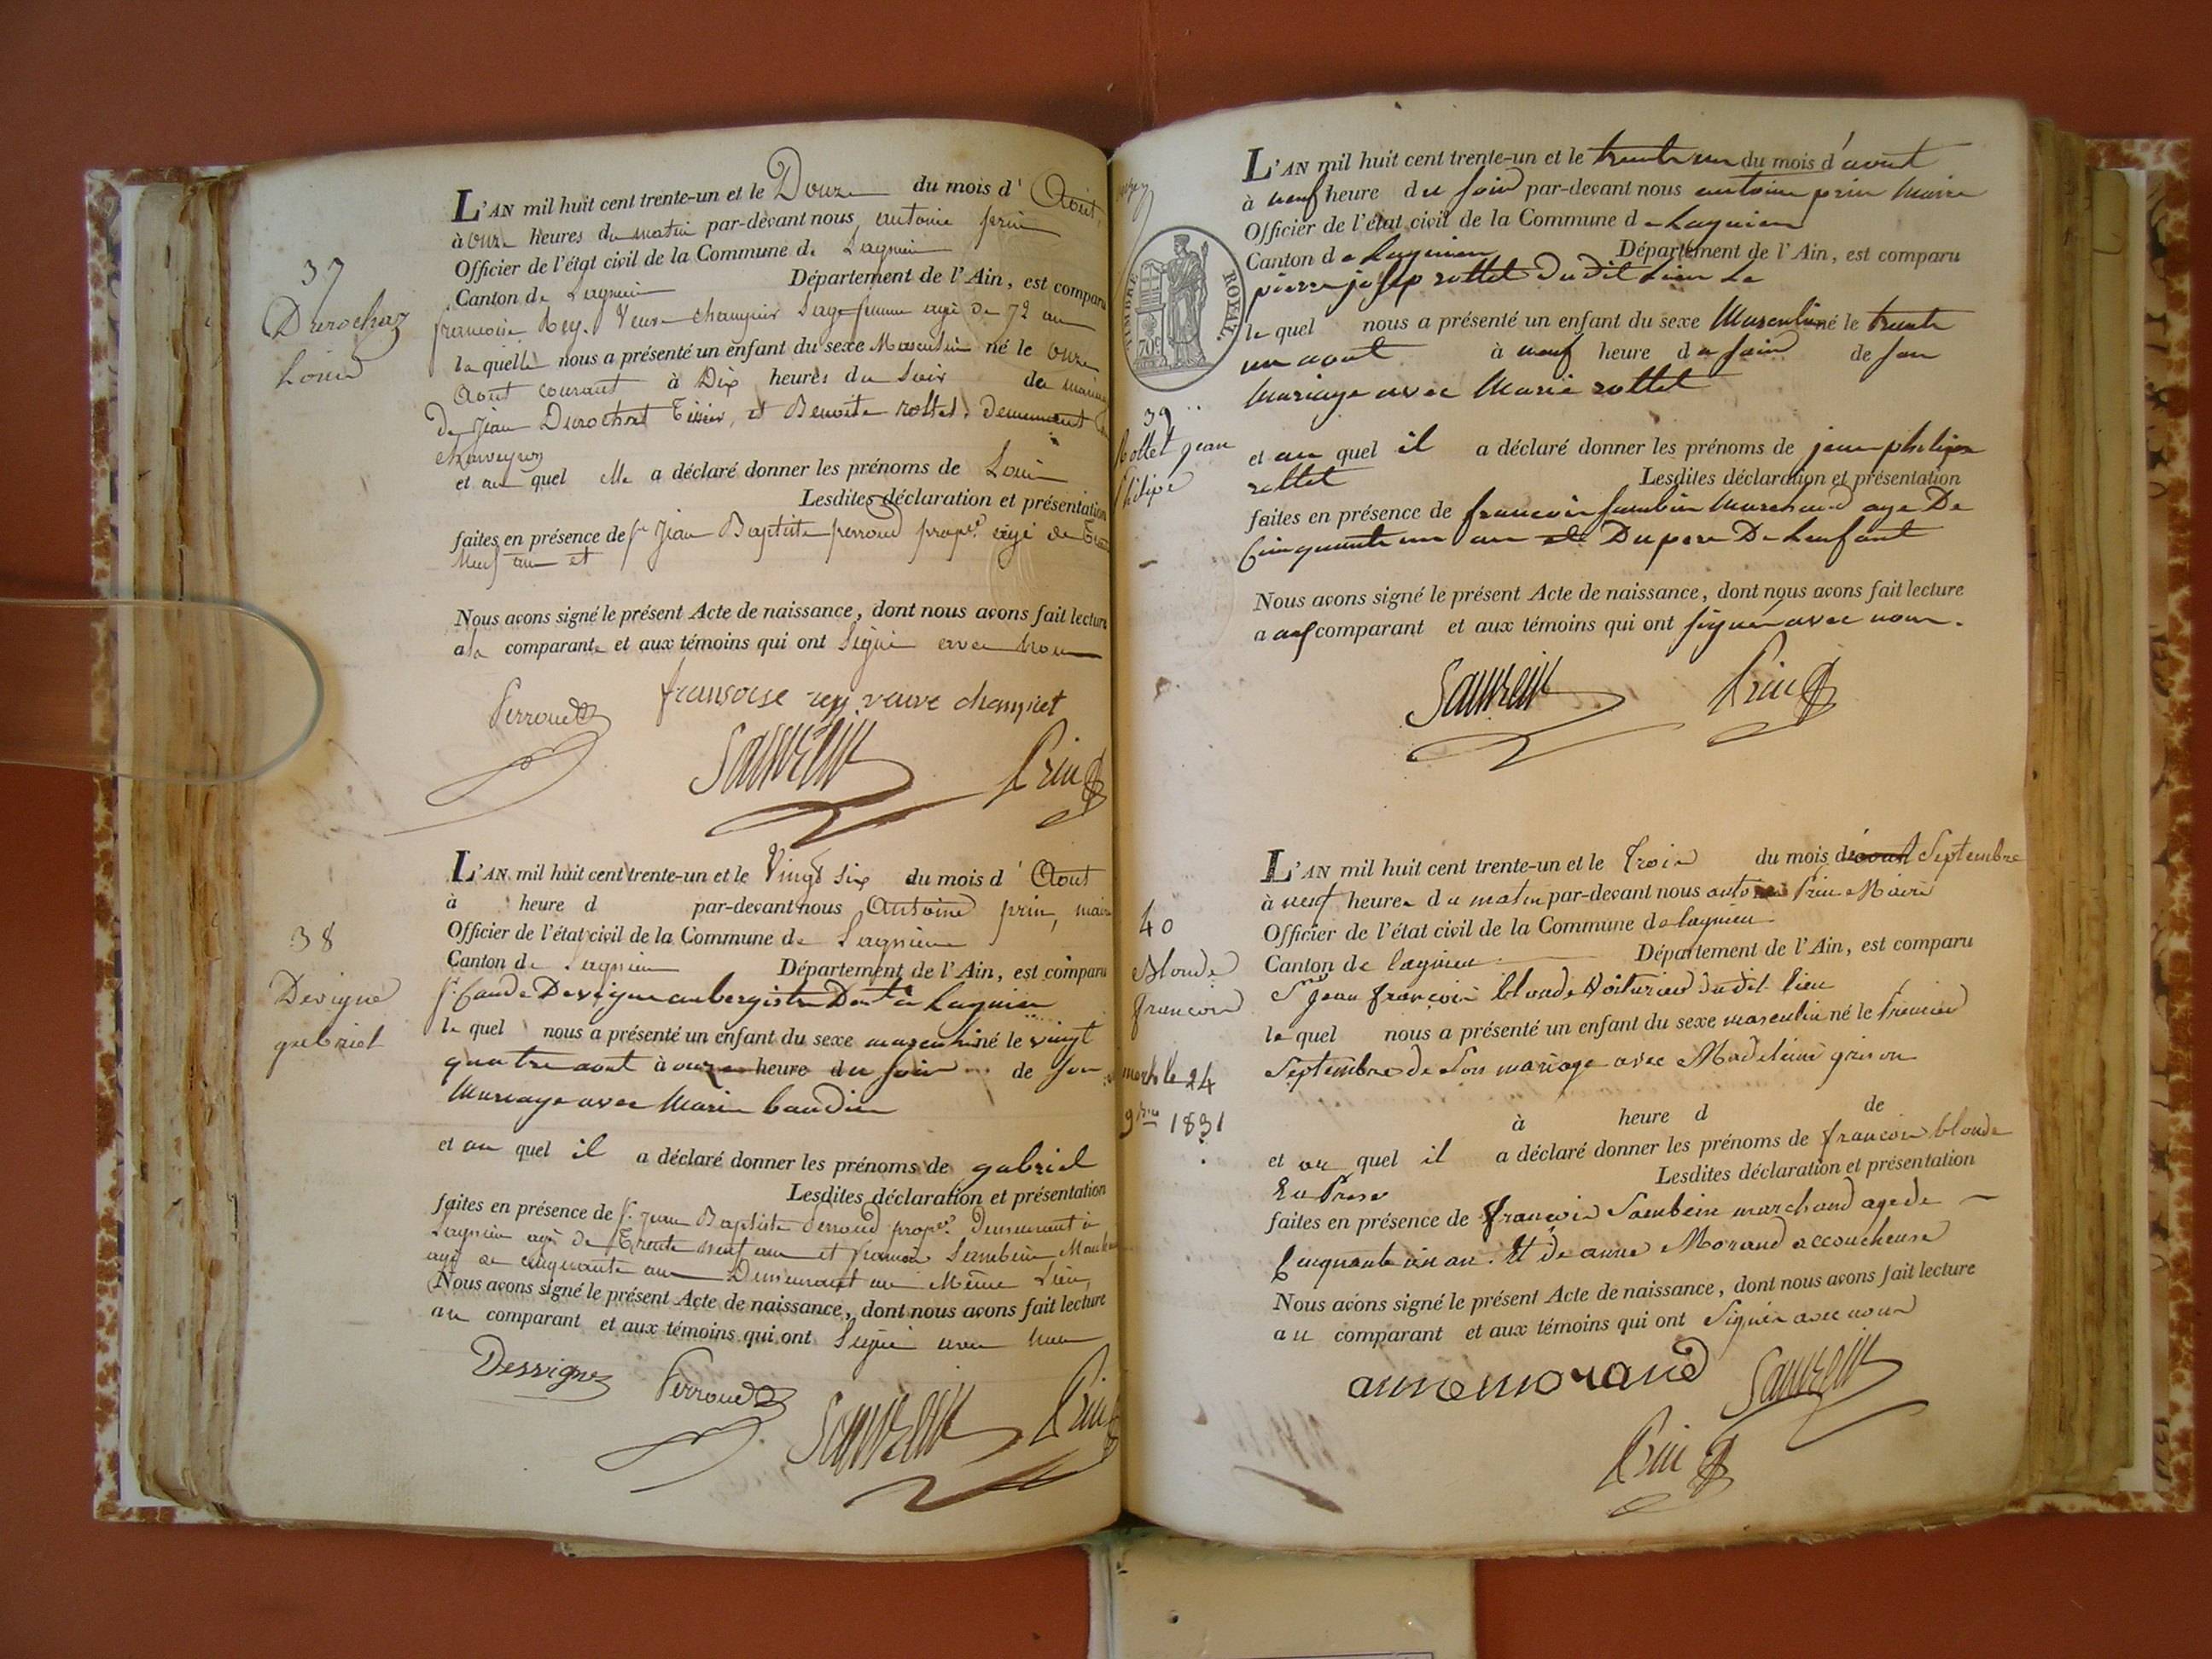 37
Durochaz
Louis
L'AN mil huit cent trente-un et le Douze du mois d' Août
à onze heures du matin par-devant nous, antoine prin
Officier de l'état civil de la Commune de Lagnieu
Canton de Lagnieu Département de l'Ain, est comparu
francoise Rey. Veuve champier Sage femme agé de 72 an
la quelle nous a présenté un enfant du sexe Masculin né le onze
Aout courant à Dix heures du Soir
de Jean Durochat Tissier, et Benoite rollet. demeurant
et au quel elle a déclaré donner les prénoms de Louis
Lesdites déclaration et présentation
faites en présence de Sr Jean Baptiste perroud propre. agé de
Neuf an et
Nous avons signé le présent Acte de naissance, dont nous avons fait lecture
a la comparante et aux témoins qui ont Signé avec nous
Perroud
fransoise rey veuve champiet
Sauzein
Prin
38
Devigne
gabriel
L'AN mil huit cent trente-un et le Vingt six du mois d' Aout
à heure d par-devant nous Antoine prin, maire
Officier de l'état civil de la Commune de Lagnieu
Canton de Lagnieu Département de l'Ain, est comparu
Sr. Devigne aubergiste Dent à Lagnieu
le quel nous a présenté un enfant du sexe masculin né le vingt
quatre aout à onze heure du soir de son
Mariage avec Marie baudin
et au quel il a déclaré donner les prénoms de gabriel
Lesdites déclaration et présentation
faites en présence de Sr. Jean Baptiste Perroud propre. demeurant à
Lagnieu agé de Trente neuf an et francois Sambein
agé de cinquante an Demeurant au Même Lieu,
Nous avons signé le présent Acte de naissance, dont nous avons fait lecture
au comparant et aux témoins qui ont Signé avec nous
Dessigne
Perroud
Sauzein
Prin
TIMBRE ROYAL
70c
39
Rottet jean
philipe
L'AN mil huit cent trente-un et le trente un du mois d'aout
à neuf heure du soir par-devant nous antoine prin Maire
Officier de l'état civil de la Commune de Lagnieu
Canton de Lagnieu Département de l'Ain, est comparu
pierre josep rottet Dudit Lieu Le
le quel nous a présenté un enfant du sexe Masculin né le trente
un aout à neuf heure du soir de son
Mariage avec Marie rottet
et au quel il a déclaré donner les prénoms de jean philipe
rottet
Lesdites déclaration et présentation
faites en présence de francois sambin Marchand age De
Cinquante un an et Du pere De Lenfant
Nous avons signé le présent Acte de naissance, dont nous avons fait lecture
a comparant et aux témoins qui ont signés avec nous.
Sauzein
Prin
40
Blonde
francois
mort le 24
9bre 1831
L'AN mil huit cent trente-un et le Trois du mois d'aout Septembre
à neuf heures du matin par-devant nous antoine Prin Maire
Officier de l'état civil de la Commune de lagnieu
Canton de lagnieu Département de l'Ain, est comparu
Sr jean françois blonde Voiturier dudit lieu
le quel nous a présenté un enfant du sexe masculin né le Premier
Septembre de Son mariage avec Madelaine grison
à heure d de
et au quel il a déclaré donner les prénoms de francois blonde
Lesdites déclaration et présentation
faites en présence de françois Sambein marchand age de
Cinquante un an. Et de anne Morand accoucheuse
Nous avons signé le présent Acte de naissance, dont nous avons fait lecture
au comparant et aux témoins qui ont Signés avec nous
anne morand
Sauzein
Prin